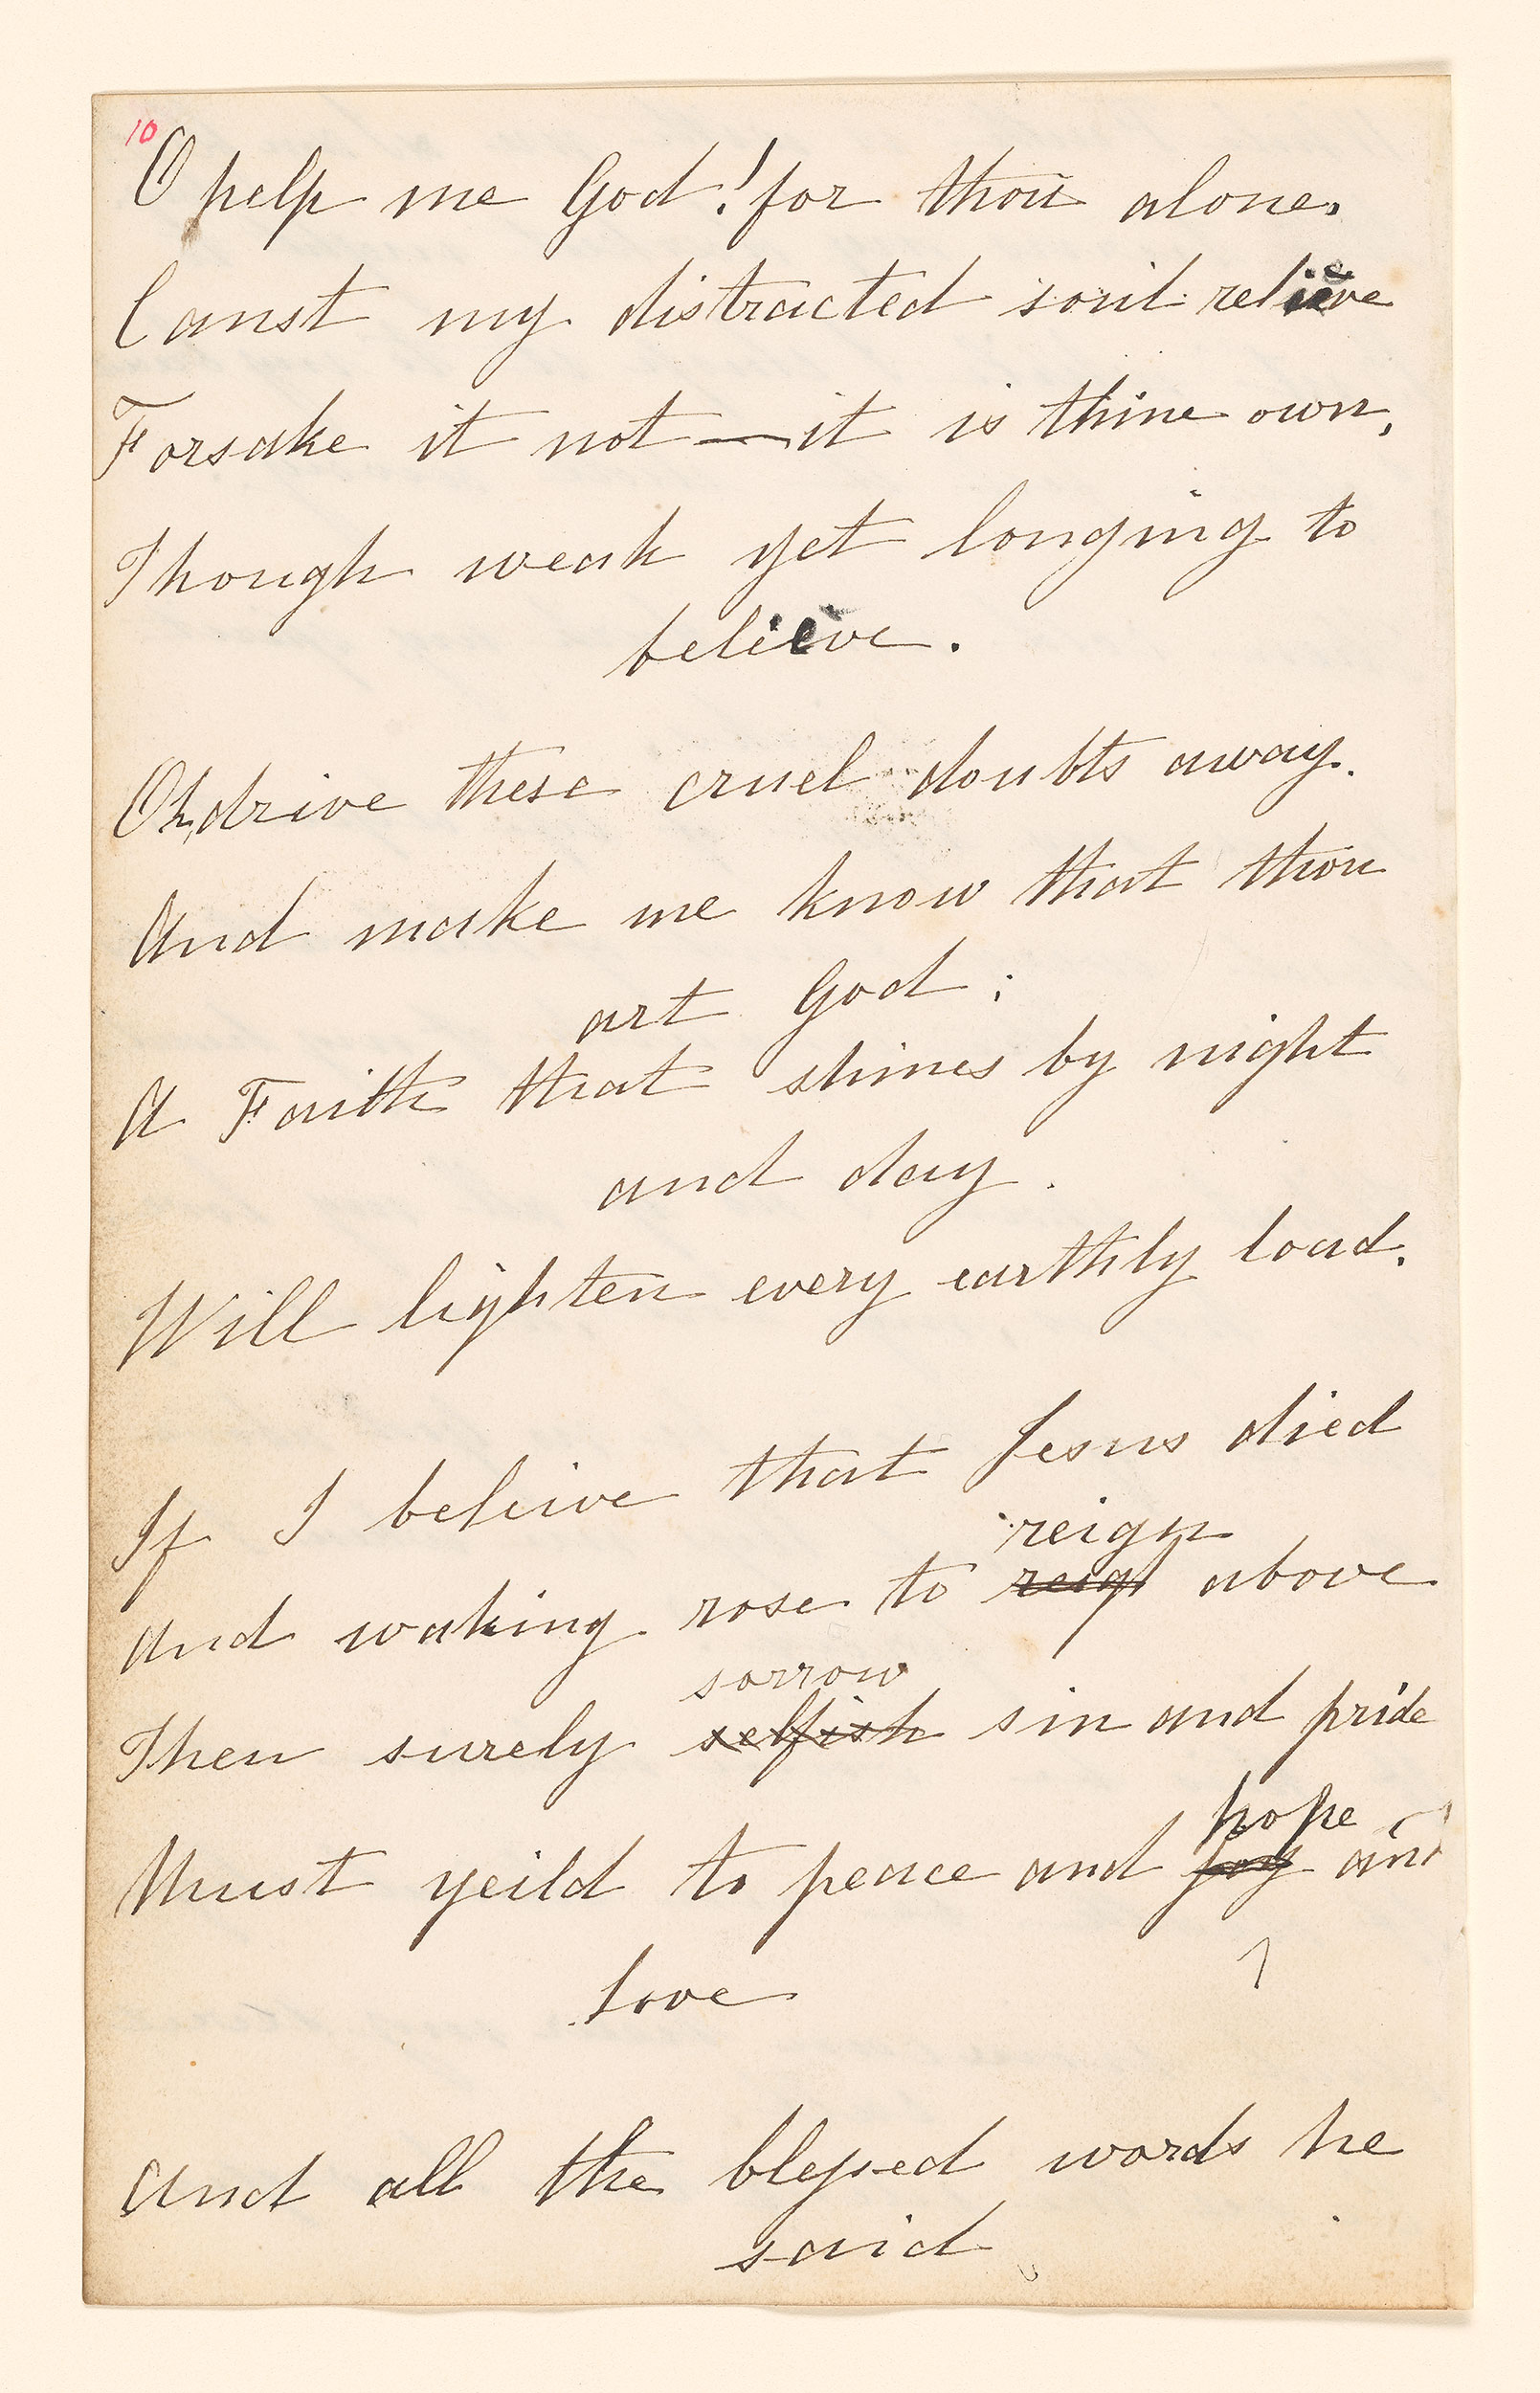 10
O help me God! for thou alone,
Canst my distracted soul relieve
Forsake it not — it is thine own,
Though weak yet longing to
believe.
Oh, drive these cruel doubts away.
And make me know that thou
art God;
A Faith that shines by night
and day.
Will lighten every earthly load.
If I beleive that Jesus died
reign
And waking rose to reign above
sorrow
Then surely selfish sin and pride
hope
Must yeild to peace and joy and
love
And all the blessed words he
said